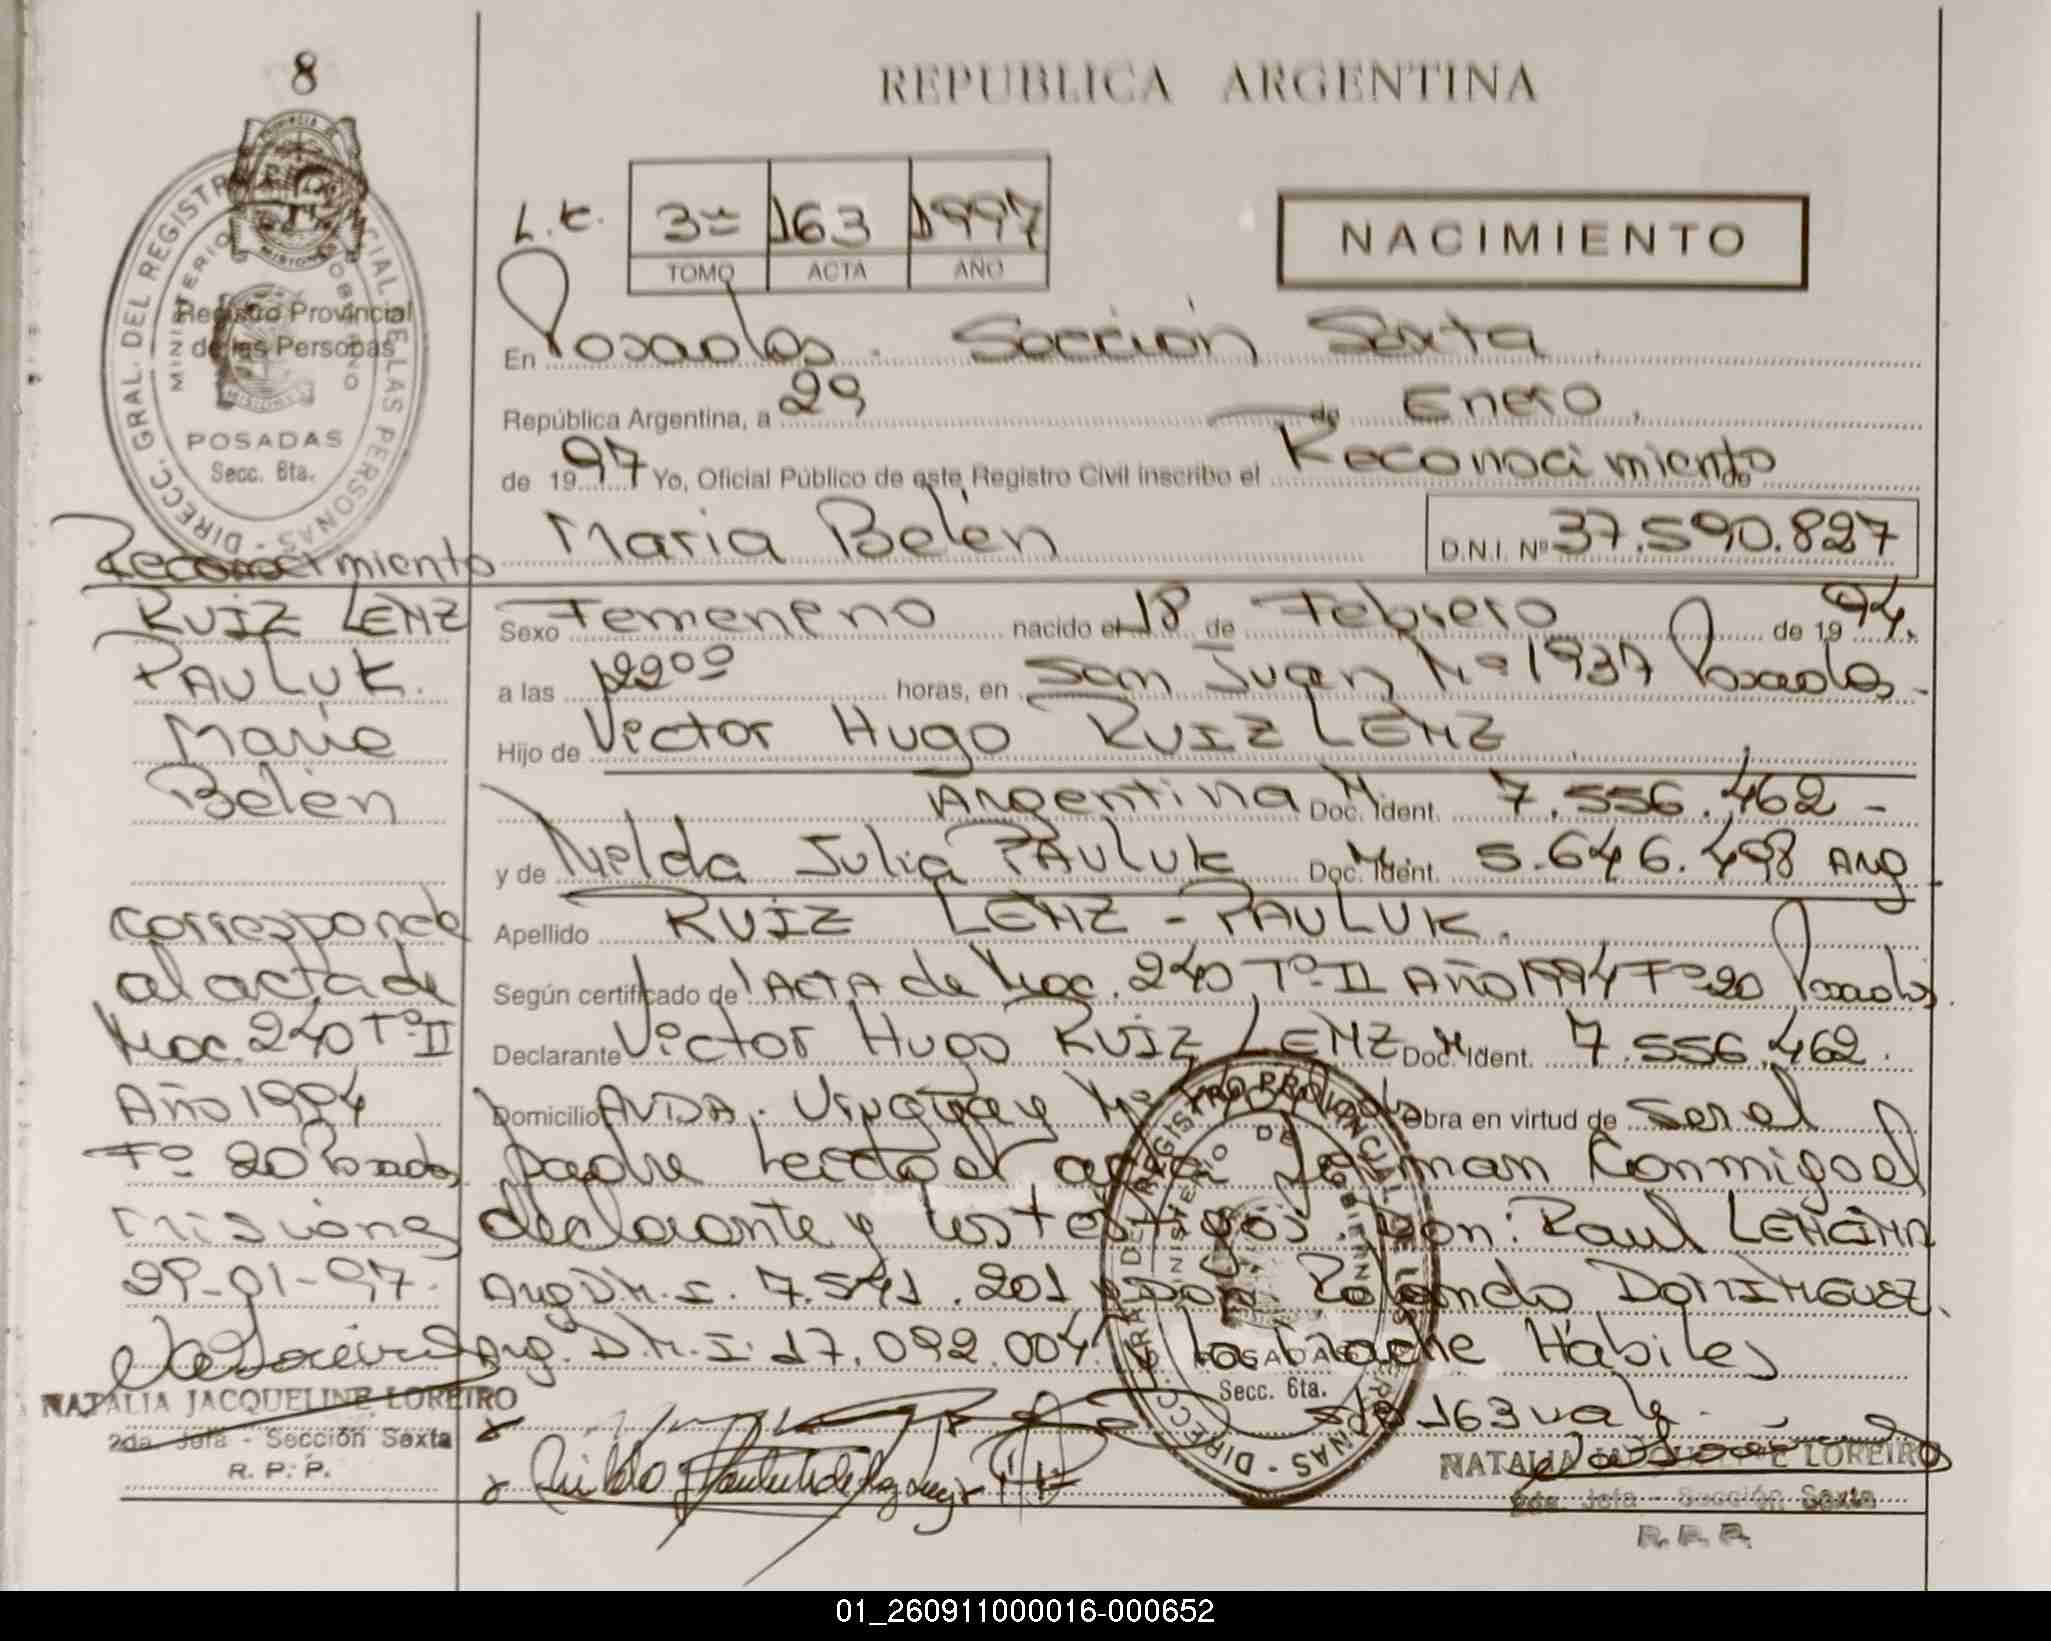 8
REPUBLICA ARGENTINA
L.C. 3= 163 1997
TOMO ACTA AÑO
NACIMIENTO
DIRECC. GRAL. DEL REGISTRO PROVINCIAL DE LAS PERSONAS
MINISTERIO DE GOBIERNO
Registro Provincial
de las Personas
MISIONES
POSADAS
Secc. 6ta.
En Posadas. Sección Sexta
República Argentina, a 29 de Enero,
de 1997 Yo, Oficial Público de este Registro Civil inscribo el Reconocimiento de
Maria Belén D.N.I. Nº 37.590.827
Reconocimiento
RUIZ LENZ
PAULUK.
Maria
Belén
corresponde
al acta de
Nac. 240 Tº II
Año 1994
Fº 20 Posadas
Misiones
29-01-97.
NATALIA JACQUELINE LOREIRO
2da. Jefa - Sección Sexta
R. P. P.
Sexo Femeneno nacido el 18 de Febrero de 1994.
a las 1200 horas, en San Juan Nº 1937 Posadas-
Hijo de Victor Hugo RUIZ LENZ
Argentina Doc. Ident. 7.556.462-
y de Nelda Julia PAULUK Doc. Ident. 5.646.498 Arg
Apellido RUIZ LENZ - PAULUK.
Según certificado de ACTA de Nac. 240 Tº II Año 1994 Fº 20 Posadas.
Declarante Victor Hugo RUIZ LENZ Doc. Ident. 7.556.462.
Domicilio AVDA. Uruguay Nº Obra en virtud de ser el
padre Leida el acta Firman Conmigo el
declarante y los testigos. Don: Raul
Arg D.N.I. 7.541.201 y Don Rolando DOMINGUEZ.
Arg. D.N.I. 17.092.004. La tache Hábiles
S/B 163 vale.
DIRECC. GRAL. DEL REGISTRO PROVINCIAL DE LAS PERSONAS
MINISTERIO DE GOBIERNO
POSADAS
Secc. 6ta.
NATALIA JACQUELINE LOREIRO
2da. Jefa - Sección Sexta
R. P. P.
01_260911000016-000652